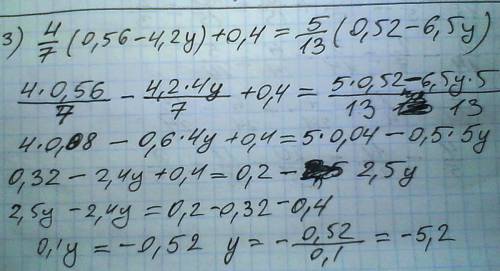 3) 4/7 (0,56-4,2y)+0,4 = 5/13 (0,52-6,5y)
4·0,56/7 - 4,2·4y/7 + 0,4 = 5·0,52/13 - 6,5y·5/13
4·0,08 - 0,6·4y + 0,4 = 5·0,04 - 0,5·5y
0,32 - 2,4y + 0,4 = 0,2 - 2,5y
2,5y - 2,4y = 0,2 - 0,32 - 0,4
0,1y = -0,52 y = - 0,52/0,1 = -5,2